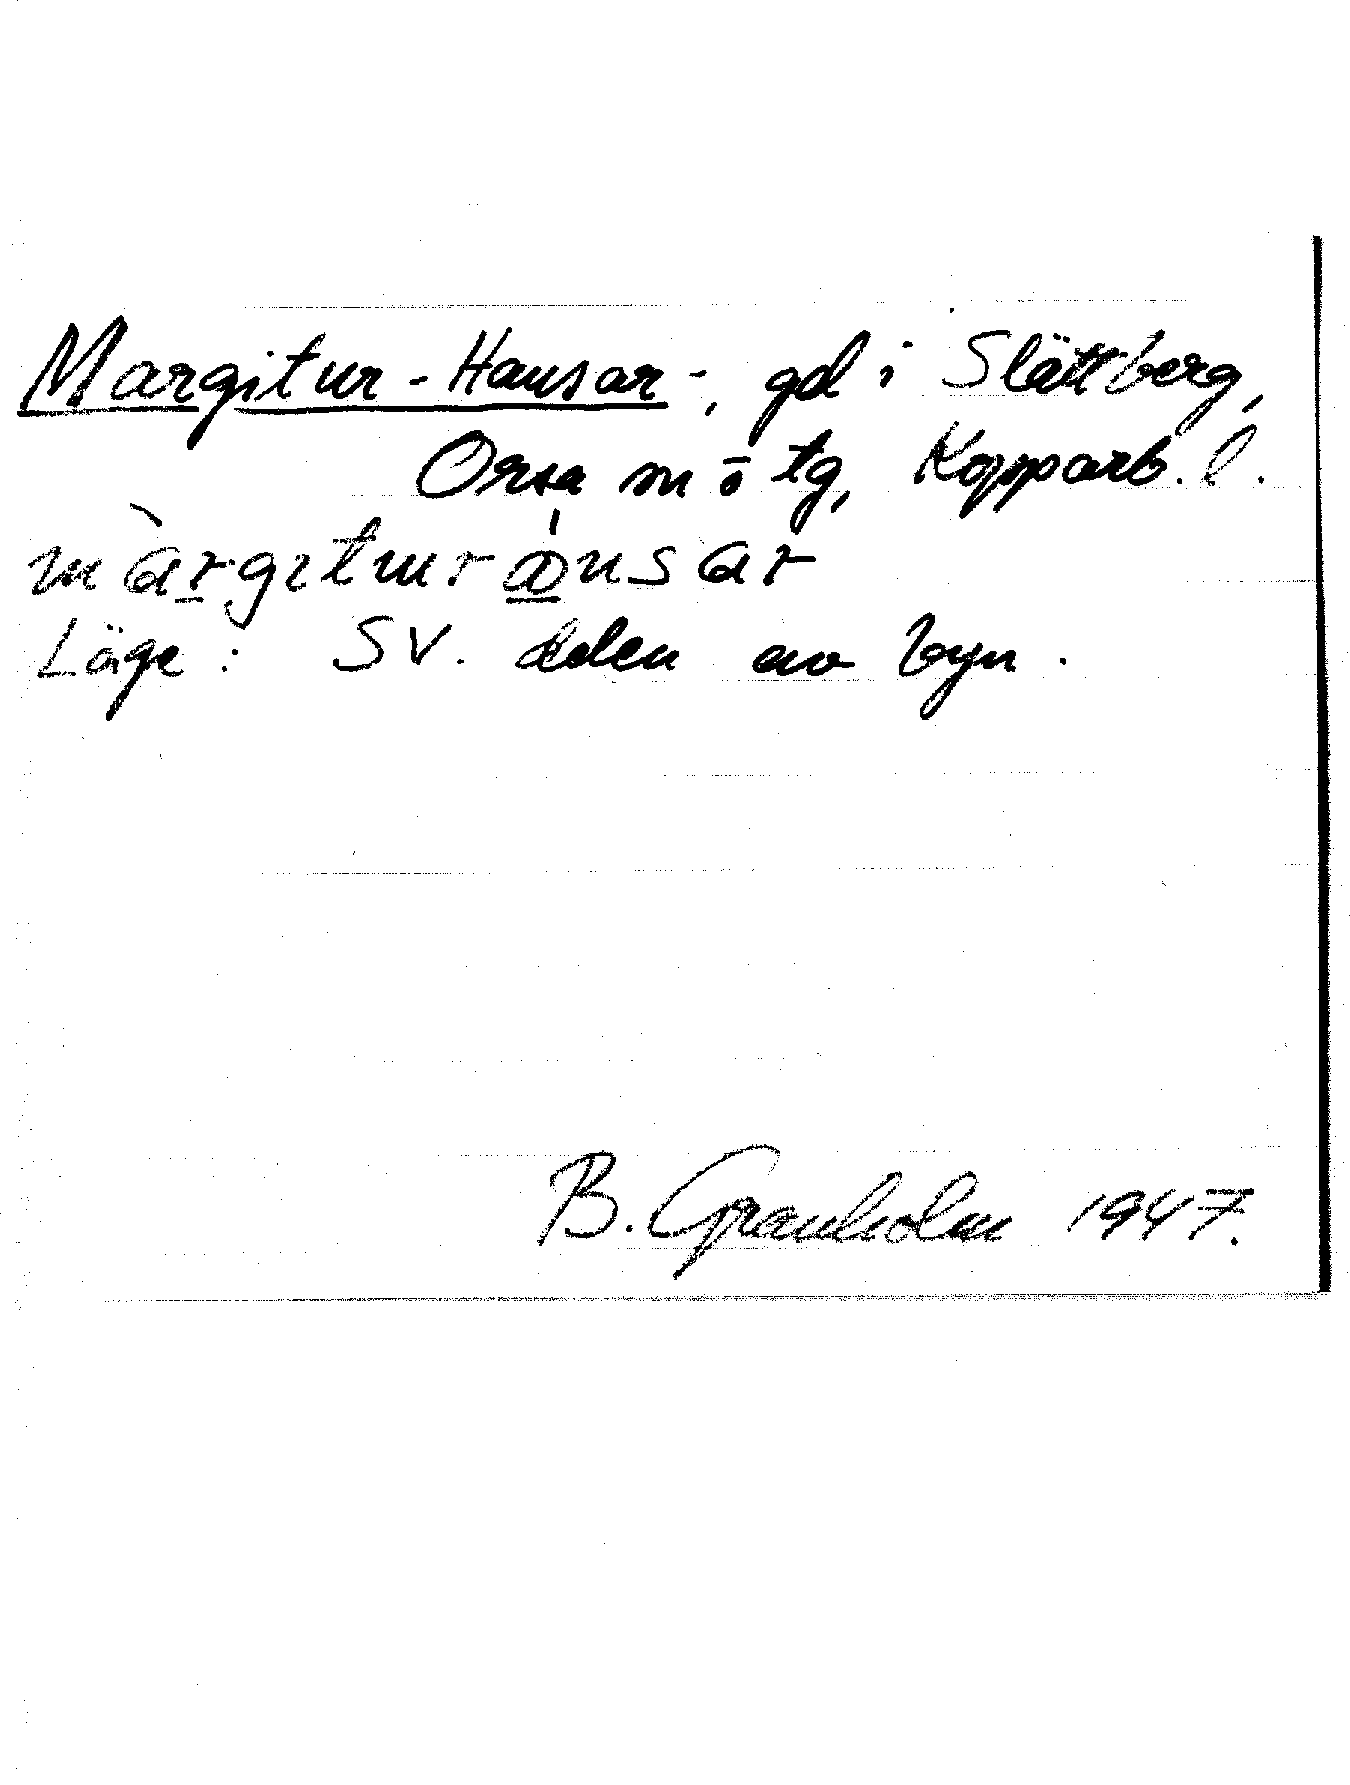 Margitur-Hansar-, gd i Slättberg,
Orsa sn o tg, Kopparb. l.
màrgıturånsar
Läge: SV. delen av byn.
B. Granholm 1947.